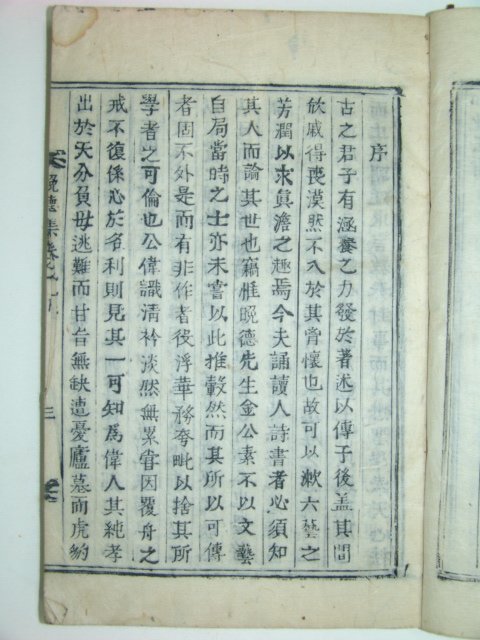 序
古之君子有涵養之力發於著述以傳于後盖其間
欣戚得喪漠然不入於其胷懷也故可以漱六藝之
芳潤以求眞澹之趣焉今夫誦讀人詩書者必須知
其人而論其世也竊惟晩德先生金公素不以文藝
自局當時之士亦未嘗以此推轂然而其所以可傳
者固不外是而有非作者役浮華務夸毗以捨其所
學者之可倫也公偉識淸衿淡然無累嘗因覆舟之
戒不復係心於名利則見其一可知爲偉人其純孝
出於天分負母逃難而甘旨無缺遭憂廬墓而虎豹
晩德集卷之
三